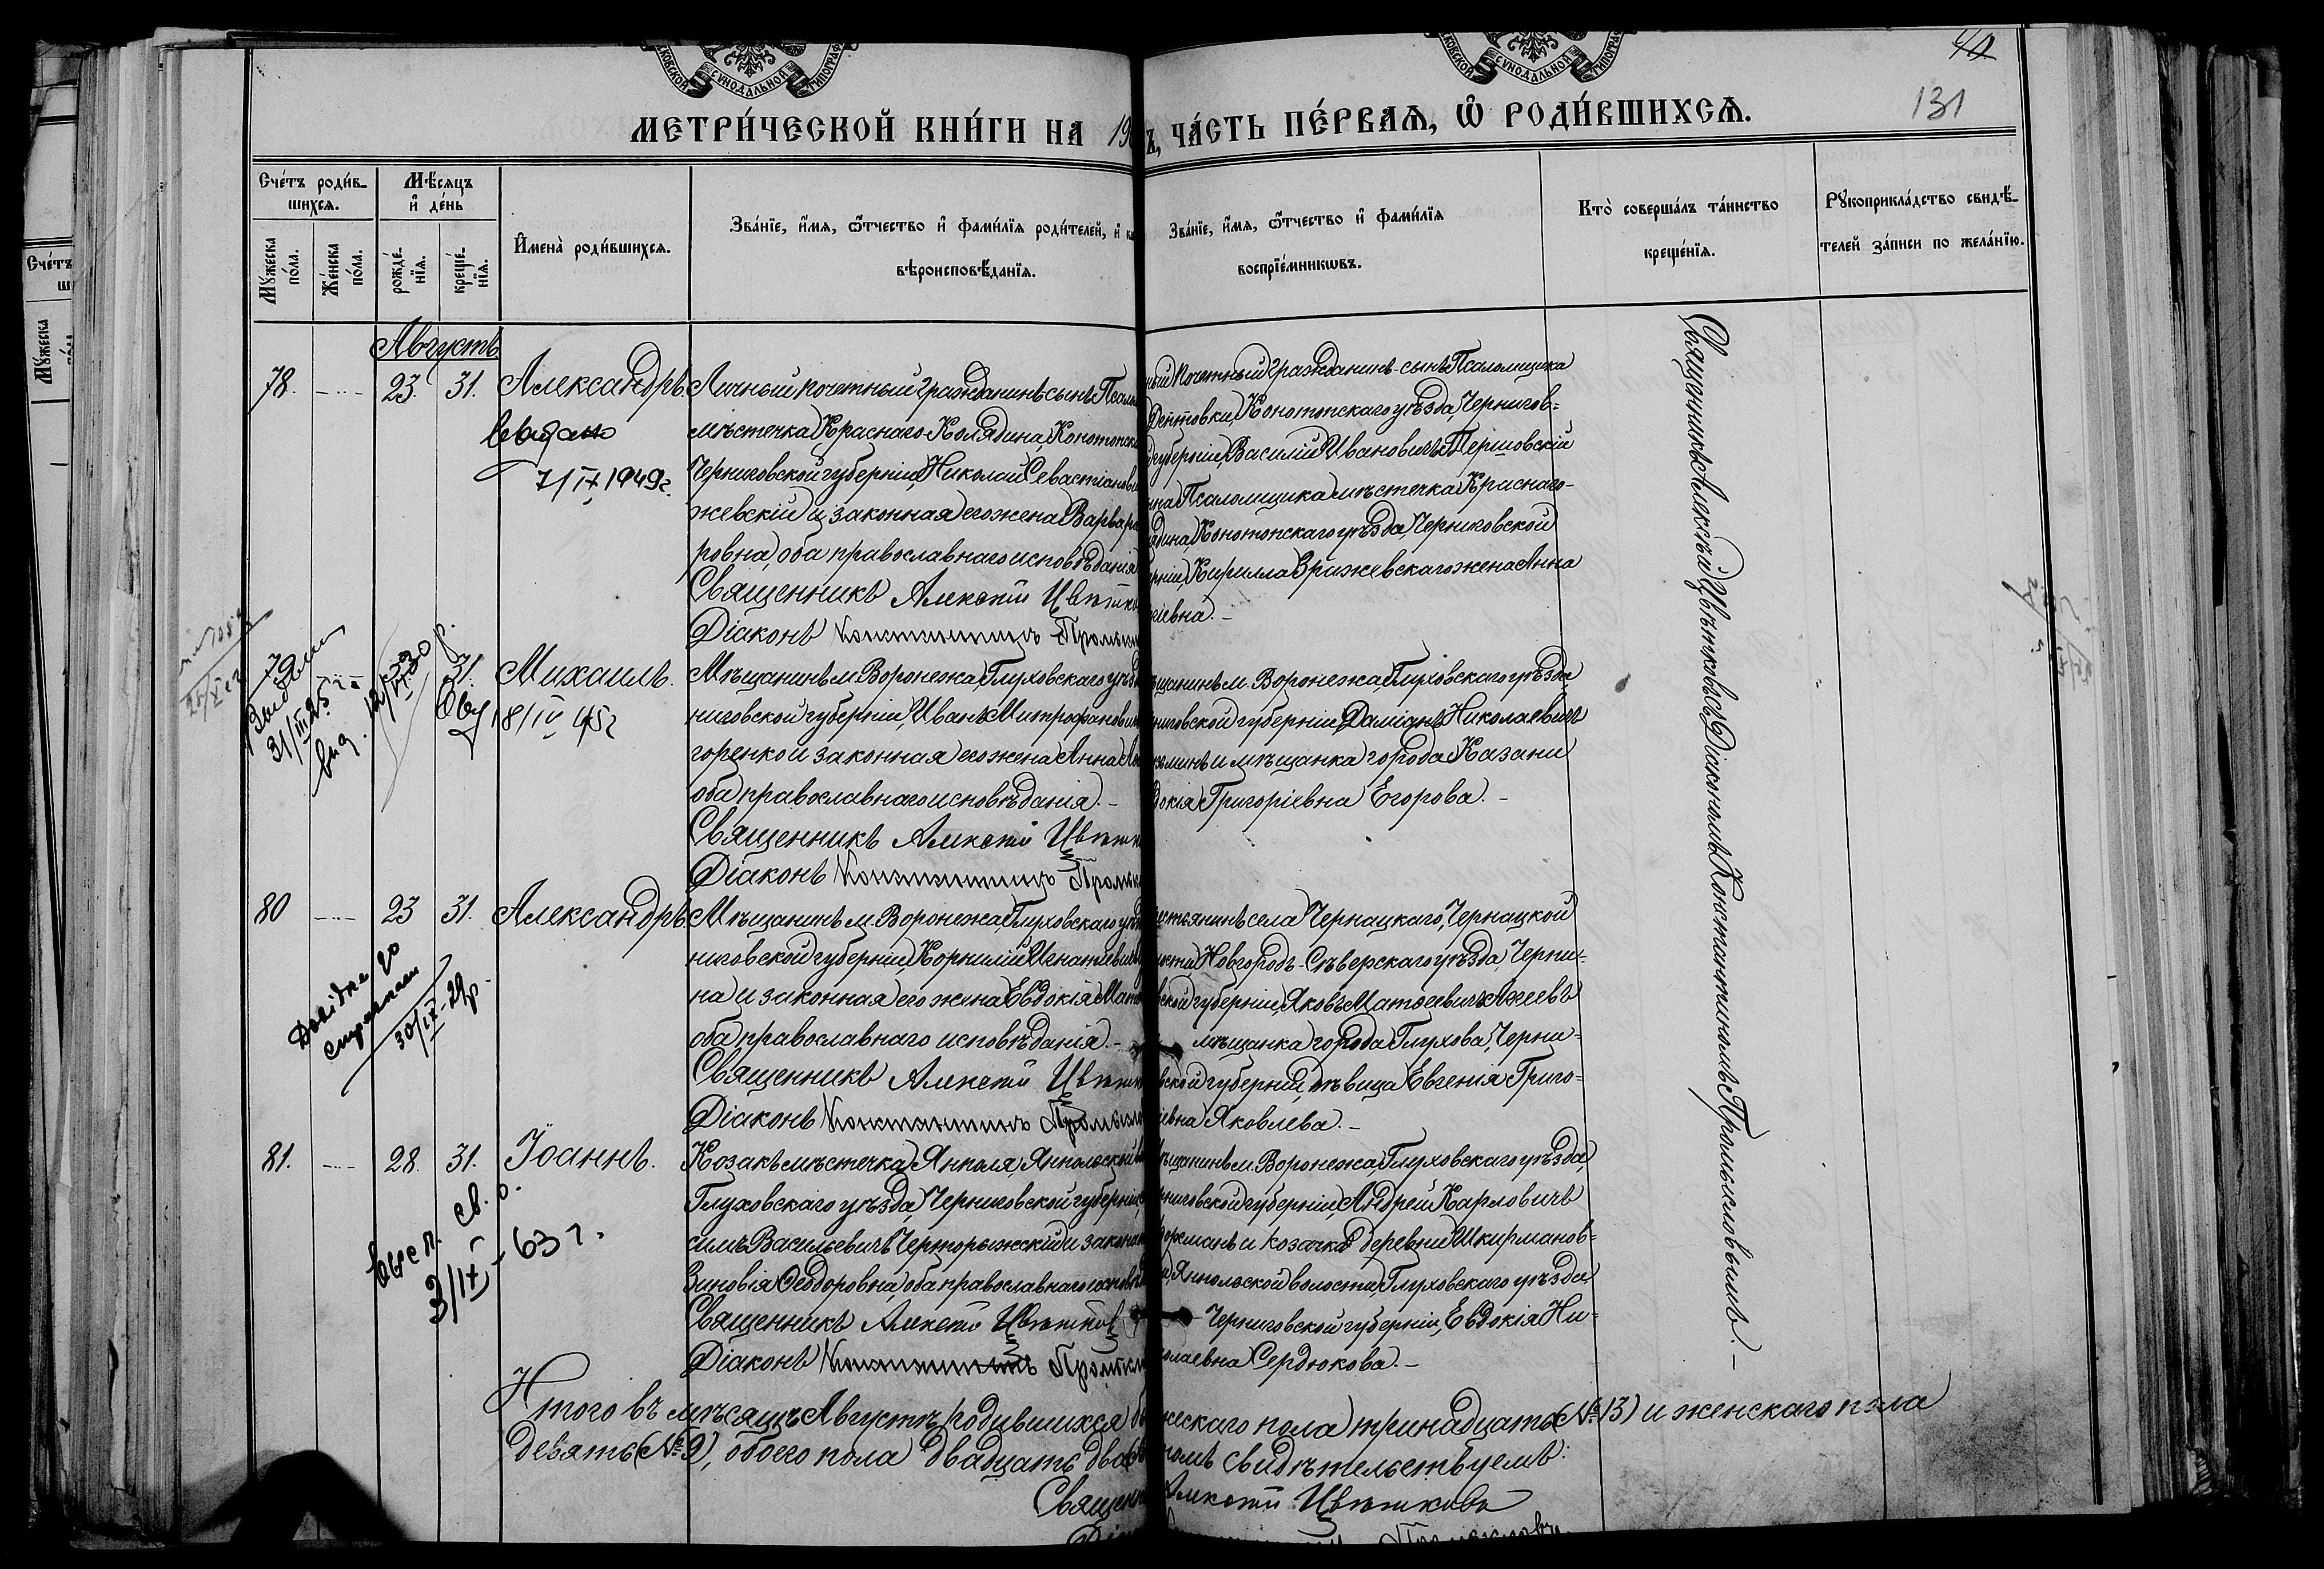 МЕТРИ́ЧЕСКОЙ КНИ́ГИ НА 19
Ъ, ЧА́СТЬ ПЕ́РВАѦ, Ѽ РОДИ́ВШИХСѦ.
131
Сче́тъ роди́в-
шихсѧ.
Мѣ́сѧцъ
и҆ де́нь
Мꙋ́жеска
по́ла.
Же́нска
по́ла.
рожде́-
нїѧ.
креще́-
нїѧ.
И҆мена̀ роди́вшихсѧ.
Зва́нїе, и҆́мѧ, ѻ҆́тчество и҆ фами́лїѧ роди́телей, и҆
вѣроисповѣ́данїѧ.
Зва́нїе, и҆́мѧ, ѻ҆́тчество и҆ фами́лїѧ
воспрїе́мникѡвъ.
Кто̀ соверша́лъ та́инство
креще́нїѧ.
Рꙋкоприкла́дство свидѣ́-
телей за́писи по жела́нїю.
Августъ
78. 23. 31. Александръ.
7/IX 1949г.
Личный почетный гражданинъ сынъ Псало
мѣстечка Краснаго-Колядина, Конотопска
Черниговской губерніи, Николай Севастіанови
жевскій и законная его жена Варвара
ровна, оба православнаго исповѣданія
Священникъ Алексѣй Цвѣтко
Діаконъ Константинъ Промысл
ный почетный гражданинъ-сынъ Псаломщика
Дептовки, Конотопскаго уѣзда, Чернигов=
губерніи, Василій Ивановичъ Тершовскій
Псаломщика мѣстечка Краснаго-
дина, Конотопскаго уѣзда, Черниговской
рніи, Кирилла Вржевскаго жена Анна
іевна.-
79 31. Михаилъ.
31/III 25
12/ 30 р.
18/IV 45г
Мѣщанинъ м. Воронежа, Глуховскаго уѣзд
ниговской губерніи, Иванъ Митрофанович
горенко и законная его жена Анна
оба православнаго исповѣданія.-
Священникъ Алексѣй Цвѣтк
Діаконъ Константинъ Промы
щанинъ м. Воронежа, Глуховскаго уѣзда,
ниговской губерніи, Даміанъ Николаевичъ
и мѣщанка города Казани
докія Григоріевна Егорова.-
80 23 31. Александръ.
Довідка до
30/IX-29р.
Мѣщанинъ м. Воронежа, Глуховскаго уѣз
ниговской губерніи, Корнилій Игнатіевичъ
на и законная его жена Евдокія Мат
оба православнаго исповѣданія.-
Священникъ Алексѣй Цвѣтк
Діаконъ Константинъ Промысло
стьянинъ села Чернацкаго, Чернацкой
ости Новгородъ-Сѣверскаго уѣзда, Черни=
вской губерніи, Яковъ Матѳеевичъ Агеевъ
мѣщанка города Глухова, Черни=
вской губерніи, дѣвица Евгенія Григо=
іевна Яковлева.-
81. 28. 31. Іоаннъ.
св. о.
3/IX-63 г.
Козакъ мѣстечка Янполя, Янпольской
Глуховскаго уѣзда, Черниговской губерніи,
симъ Васильевичъ Чарторыжскій и закон
Зиновія Ѳеодоровна, оба православнаго исповѣ
Священникъ Алексѣй Цвѣтков
Діаконъ Константинъ Промысл
щанинъ м. Воронежа, Глуховскаго уѣзда,
рниговской губерніи, Андрей Карловичъ
и козачка деревни Шкирманов=
Янпольской волости, Глуховскаго уѣзда,
Черниговской губерніи, Евдокія Ни=
олаевна Сердюкова.-
Священникъ Алексѣй Цвѣтковъ съ Діакономъ Константиномъ Промысловымъ.-
Итого въ мѣсяцѣ Августѣ родившихся
жескаго пола тринадцать (№ 13) и женскаго пола
девять (№ 9), обоего пола двадцать два
томъ свидѣтельствуемъ:
Священ
Алексѣй Цвѣтковъ
Промысловъ